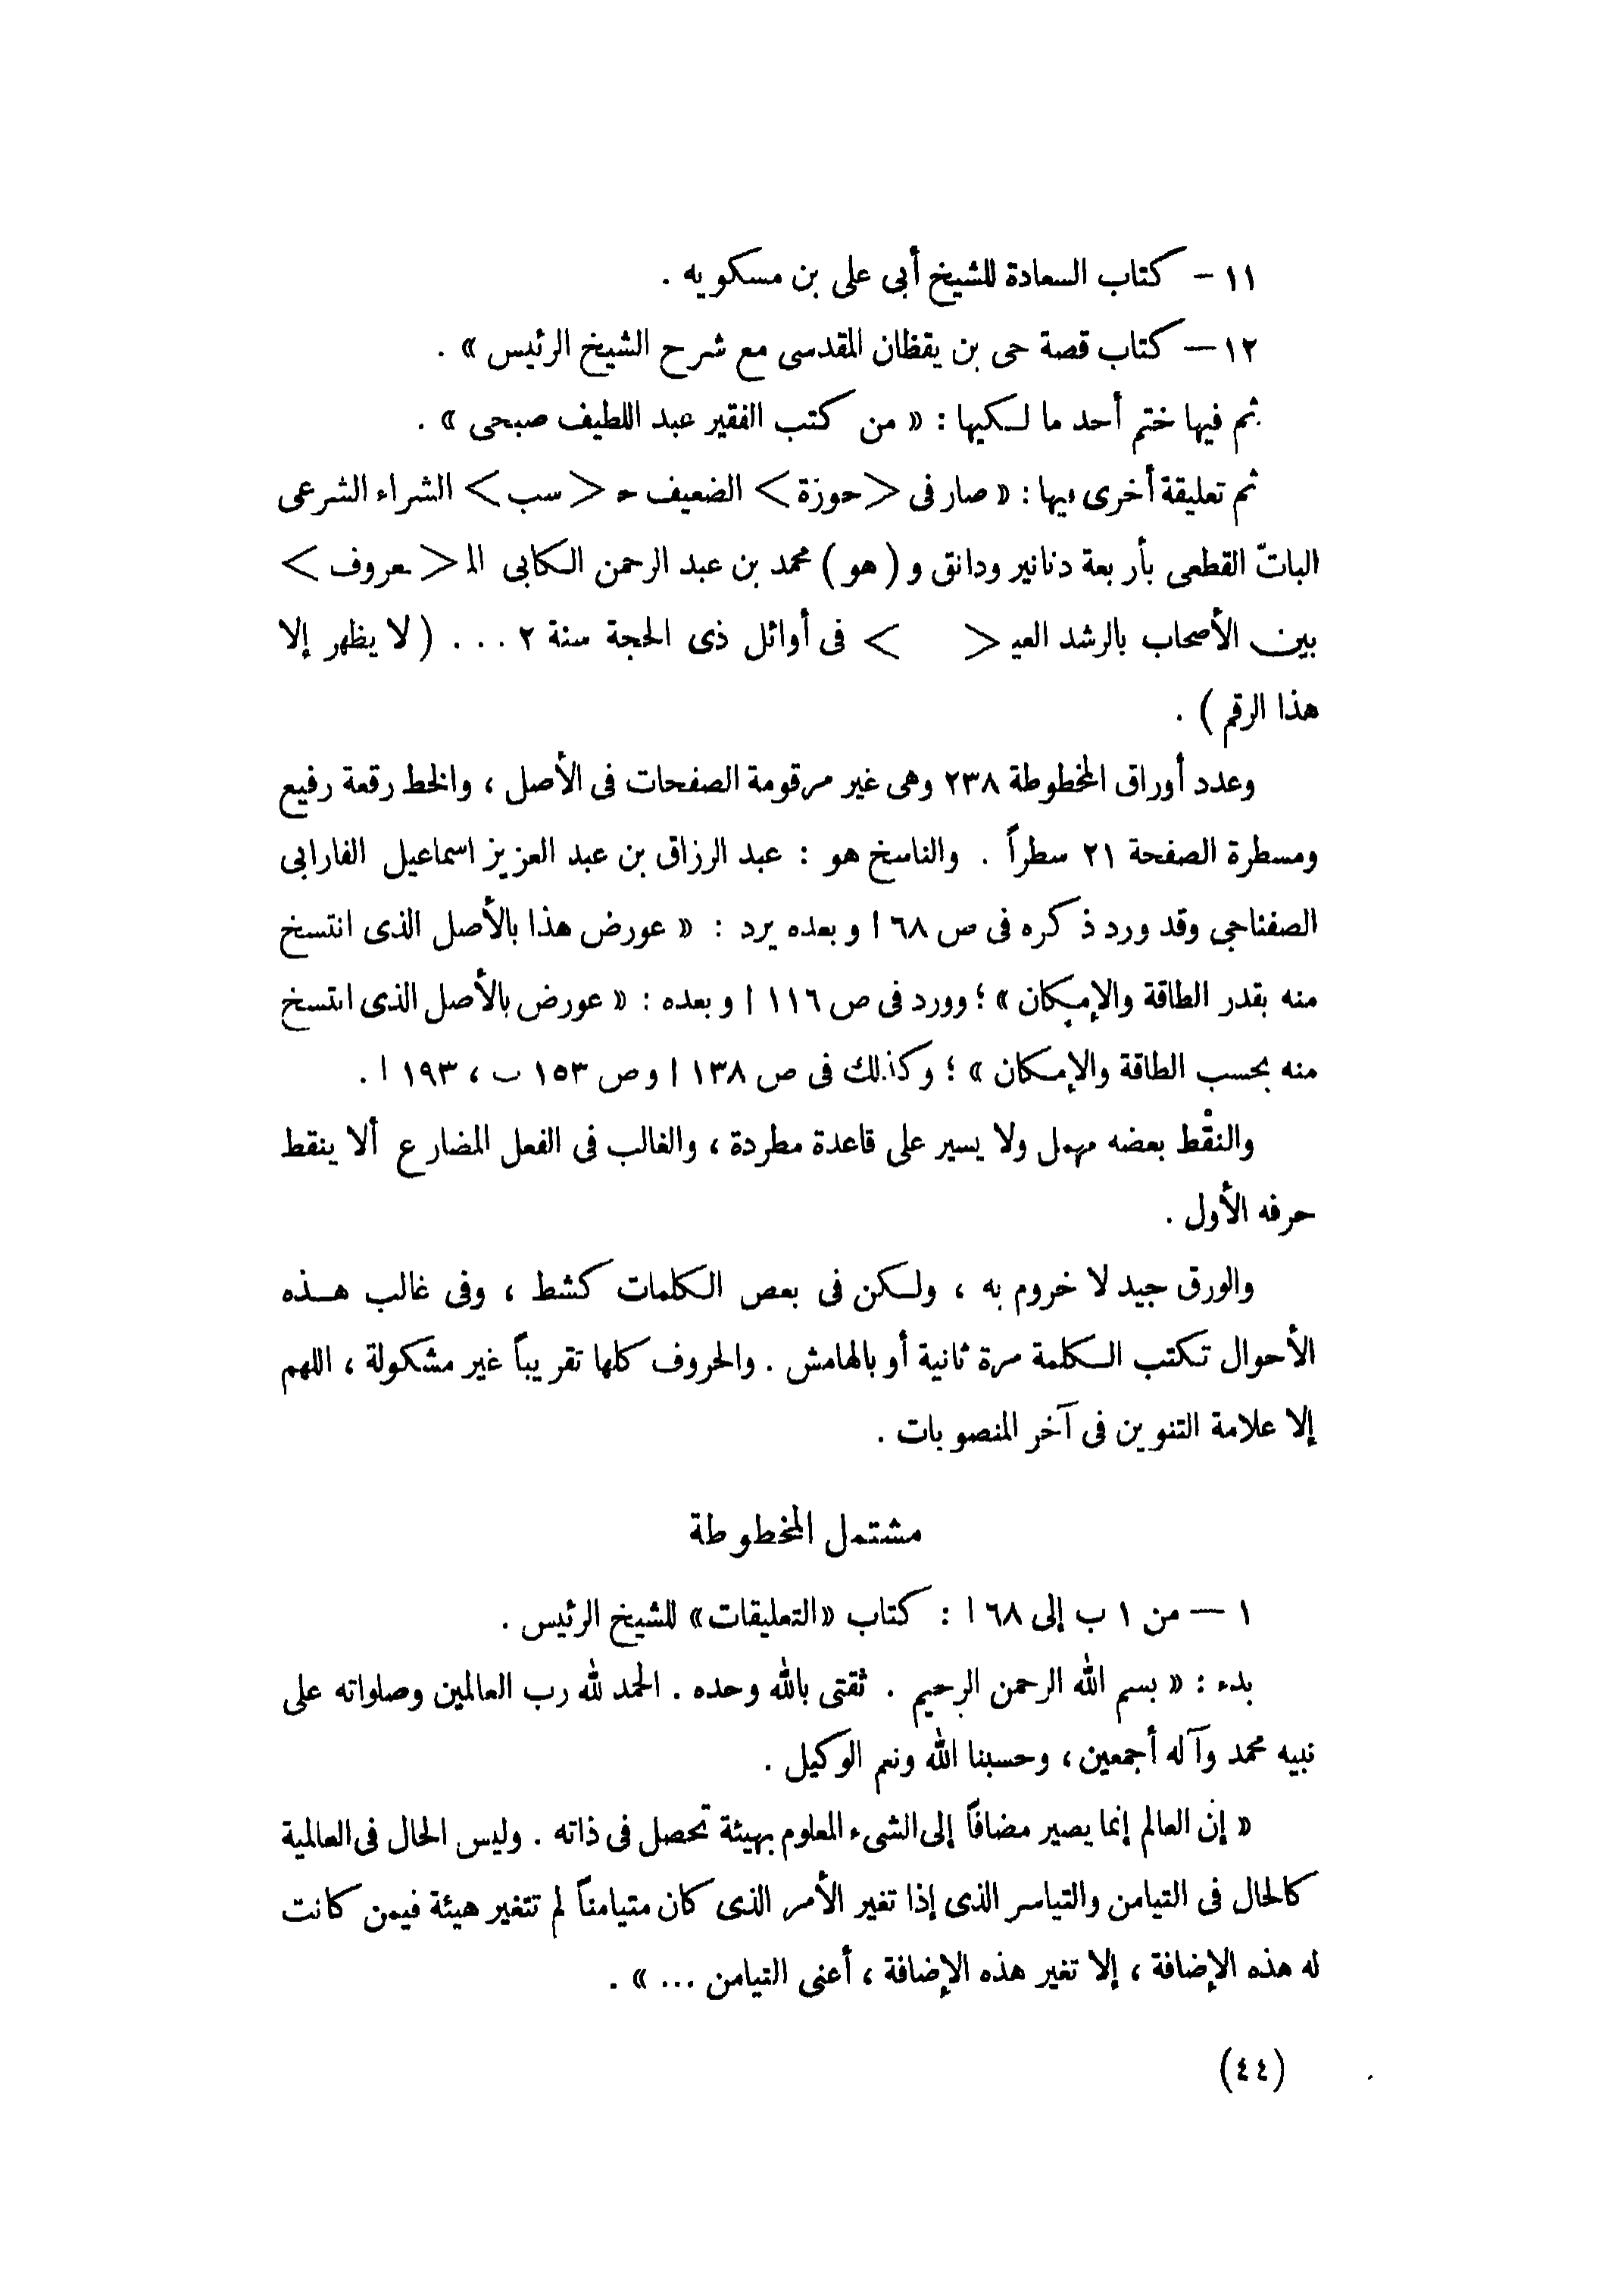 ١١ – كتاب السعادة للشيخ أبى على بن مسكويه .
١٢ — كتاب قصة حى بن يقظان المقدسى مع شرح الشيخ الرئيس » .
ثم فيها ختم أحد مالكيها : « من كتب الفقير عبد اللطيف صبحى » .
ثم تعليقة أخرى فيها : « صار فى < حوزة > الضعيف حـ < سب > الشراء الشرعى
الباتّ القطعى بأربعة دنانير ودانق و ( هو ) محمد بن عبد الرحمن الكابى الـ < معروف >
بين الأصحاب بالرشد العيـ < > فى أوائل ذى الحجة سنة ٢ . . . ( لا يظهر إلا
هذا الرقم ) .
وعدد أوراق المخطوطة ٢٣٨ وهى غير مرقومة الصفحات فى الأصل ، والخط رقعة رفيع
ومسطرة الصفحة ٢١ سطراً . والناسخ هو : عبد الرزاق بن عبد العزيز اسماعيل الفارابى
الصفناجى وقد ورد ذكره فى ص ٦٨ ا وبعده يرد : « عورض هذا بالأصل الذى انتسخ
منه بقدر الطاقة والإمكان » ؛ وورد فى ص ١١٦ ا وبعده : « عورض بالأصل الذى انتسخ
منه بحسب الطاقة والإمكان » ؛ وكذلك فى ص ١٣٨ ا وص ١٥٣ ب ، ١٩٣ ا .
والنقْط بعضه مهمل ولا يسير على قاعدة مطردة ، والغالب فى الفعل المضارع ألا ينقط
حرفه الأول .
والورق جيد لا خروم به ، ولكن فى بعض الكلمات كشط ، وفى غالب هذه
الأحوال تكتب الكلمة مرة ثانية أو بالهامش . والحروف كلها تقريباً غير مشكولة ، اللهم
إلا علامة التنوين فى آخر المنصوبات .
مشتمل المخطوطة
١ — من ١ ب إلى ٦٨ ا : كتاب « التعليقات » للشيخ الرئيس .
بدء : « بسم الله الرحمن الرحيم . ثقتى بالله وحده . الحمد لله رب العالمين وصلواته على
نبيه محمد وآله أجمعين ، وحسبنا الله ونعم الوكيل .
« إن العالم إنما يصير مضافاً إلى الشىء المعلوم بهيئة تحصل فى ذاته . وليس الحال فى العالمية
كالحال فى التيامن والتياسر الذى إذا تغير الأمر الذى كان متيامناً لم تتغير هيئة فيمن كانت
له هذه الإضافة ، إلا تغير هذه الإضافة ، أعنى التيامن ... » .
(٤٤)